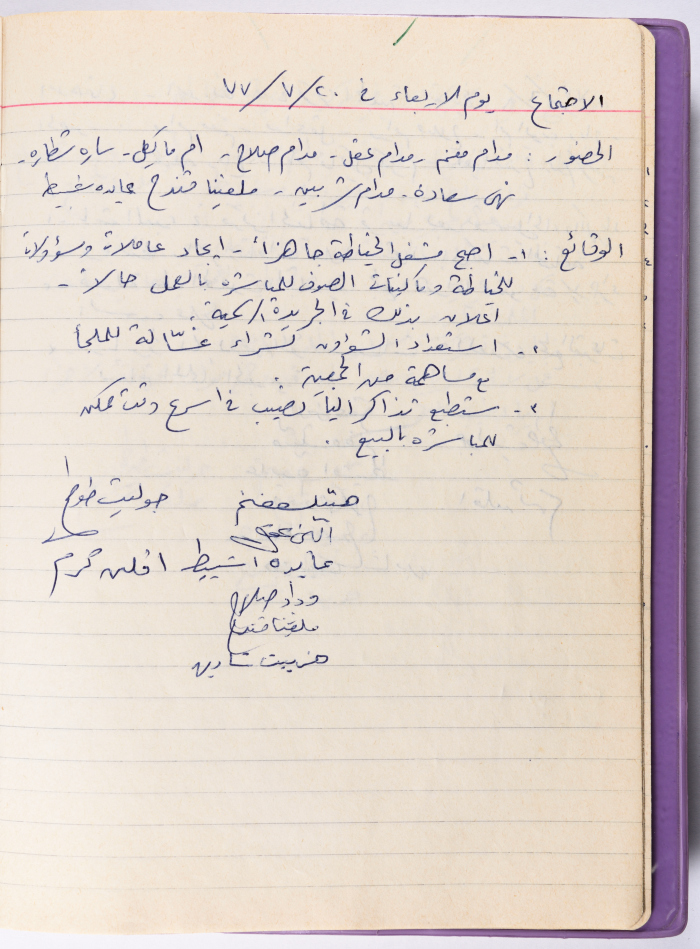 الاجتماع يوم الاربعاء في ٢٠/٧/٧٧
الحضور : مدام مغنم - مدام عقل - مدام صلاح - ام مايكل - ساره شطاره -
نهى سعادة - مدام شربين - ملفينا قندح عايده
الوقائع : ١- اصبح مشغل الخياطة جاهزاً - ايجاد عاملات ومسؤولات
للخياطة وماكينات الصوف للمباشره بالعمل حالاً -
اعلان بذلك في الجريدة الرسمية .
٢- استعداد الشؤون لشراء غسّالة للملجأ
مع مساهمة من الجمعية .
٣- تذاكر اليانصيب في اسرع وقت ممكن
للمباشره بالبيع .
مغنم جوليت
عقل
عايده
وداد صلاح
ملفينا قندح
هنرييت